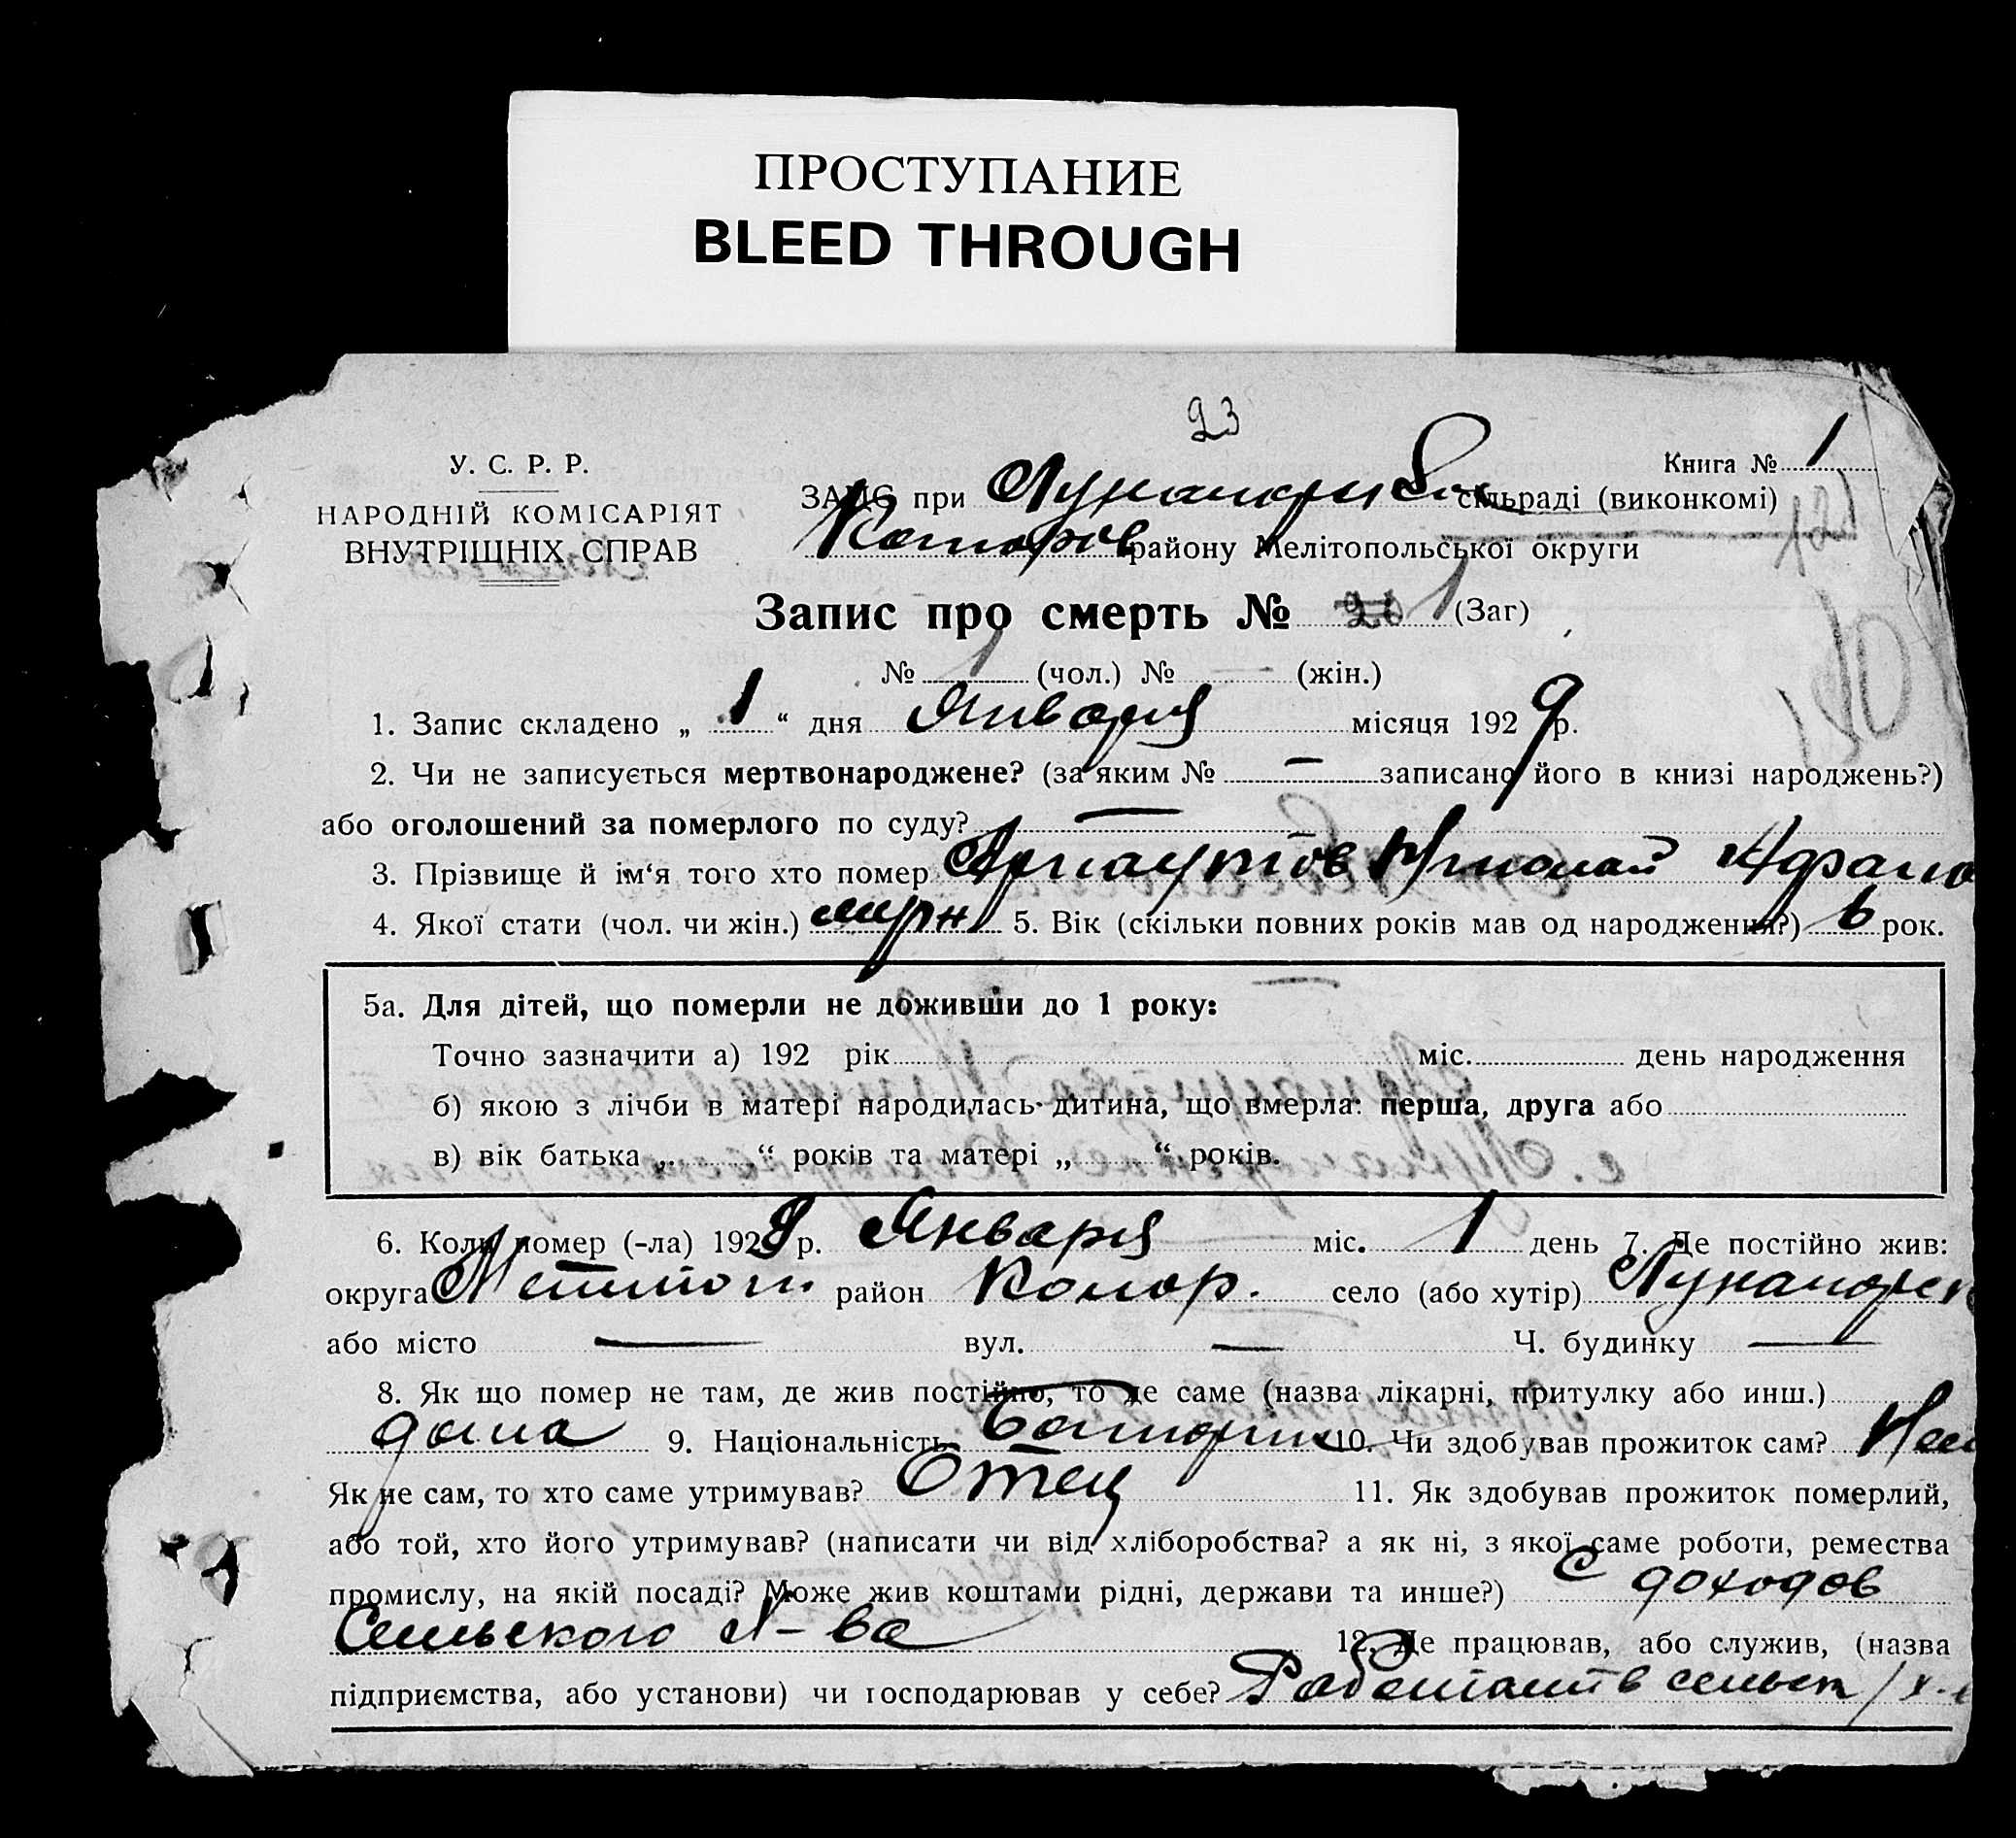 ПРОСТУПАНИЕ
BLEED THROUGH
23
У. С. Р. Р.
НАРОДНІЙ КОМІСАРІЯТ
ВНУТРІШНІХ СПРАВ
Книга № 1
ЗАПС при сільраді (виконкомі)
району Мелітопольської округи
Запис про смерть № 1 (Заг)
№ 1 (чол.) № — (жін.)
1. Запис складено „ 1 “ дня Января місяця 1929 р.
2. Чи не записується мертвонароджене? (за яким № — записано його в книзі народжень?)
або оголошений за померлого по суду? —
3. Прізвище й ім‘я того хто помер Арнаутов Николай
4. Якої стати (чол. чи жін.) 5. Вік (скільки повних років мав од народження?) 6 рок.
5а. Для дітей, що померли не доживши до 1 року:
Точно зазначити а) 192 рік міс. день народження
б) якою з лічби в матері народилась дитина, що вмерла: перша, друга або
в) вік батька „ “ років та матері „ “ років.
6. Коли помер (-ла) 1929 р. Января міс. 1 день 7. Де постійно жив:
округа Мелитоп. район село (або хутір)
або місто — вул. — Ч. будинку —
8. Як що помер не там, де жив постійно, то де саме (назва лікарні, притулку або инш.)
дома 9. Національність Болгарин 10. Чи здобував прожиток сам?
Як не сам, то хто саме утримував? Отец 11. Як здобував прожиток померлий,
або той, хто його утримував? (написати чи від хліборобства? а як ні, з якої саме роботи, ремества
промислу, на якій посаді? Може жив коштами рідні, держави та инше?) С доходов
Сельского х-ва 12. Де працював, або служив, (назва
підприємства, або установи) чи господарював у себе? Работает в сельск